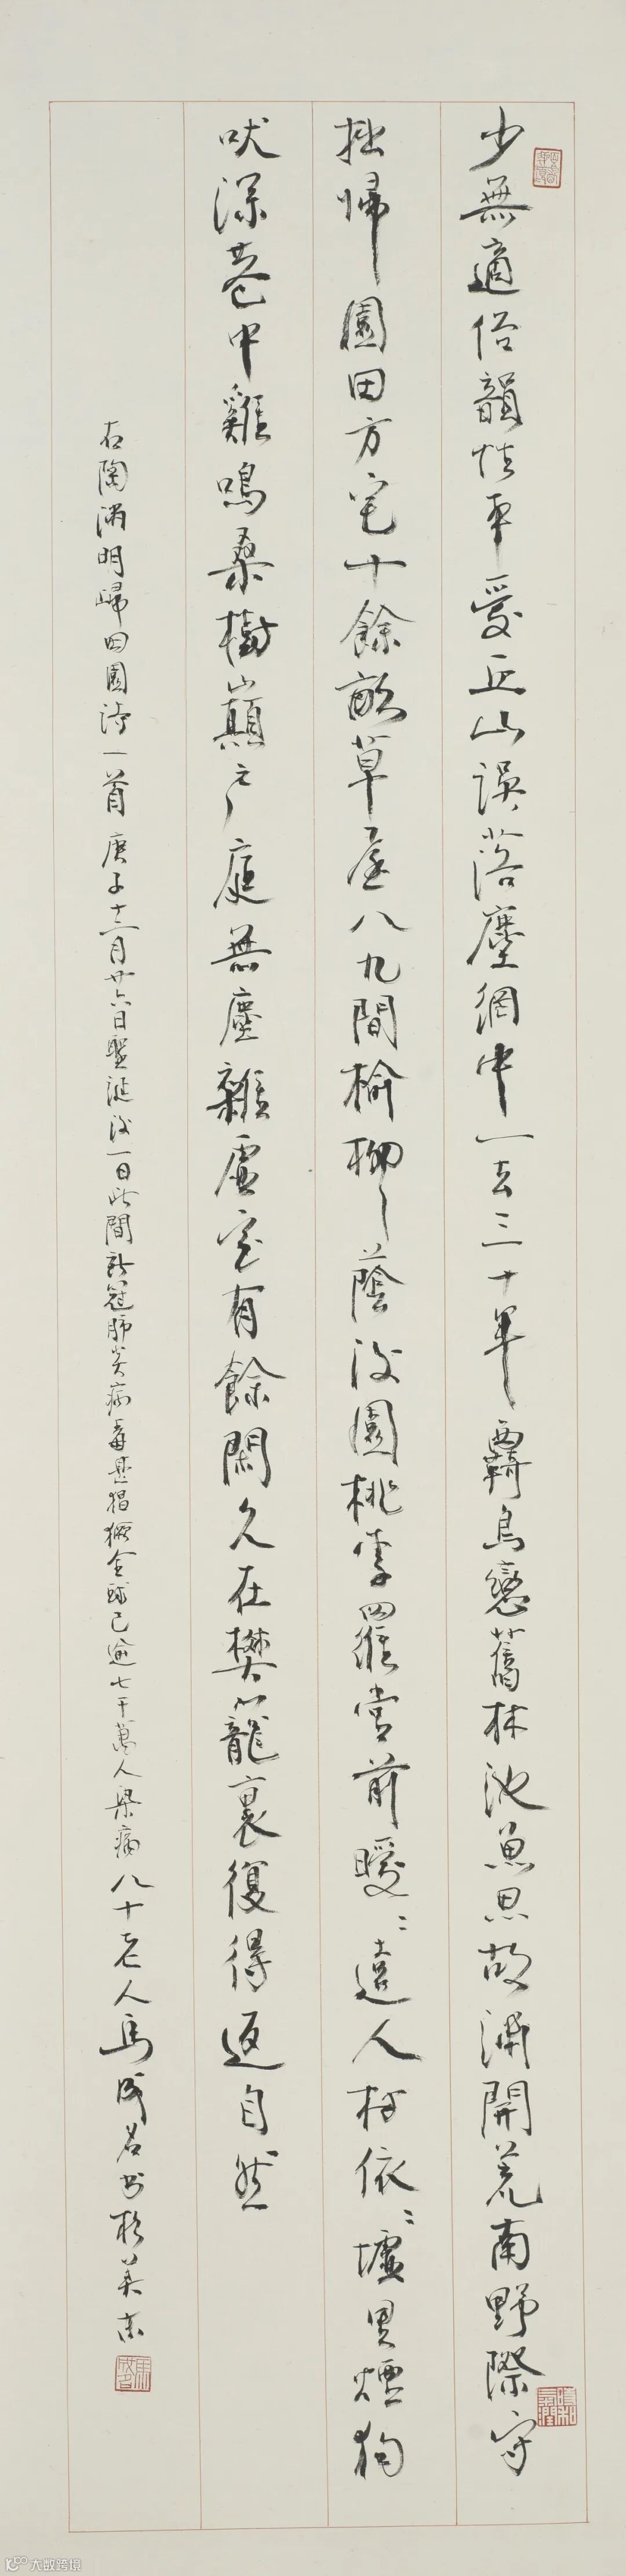 少無適俗韻性本愛丘山誤落塵網中一去三十年羈鳥戀舊林池魚思故淵開荒南野際守
拙歸園田方宅十餘畝草屋八九間榆柳蔭後園桃李羅堂前曖〻遠人村依〻墟里煙狗
吠深巷中雞鳴桑樹巔戶庭無塵雜虛室有餘閑久在樊籠裏復得返自然
右陶淵明歸田園詩一首庚子十一月廿六日聖誕後一日此間新冠肺炎病毒甚猖獗全球已逾七千萬人染病八十老人馬成名書於美東
馬成名
大数跨境